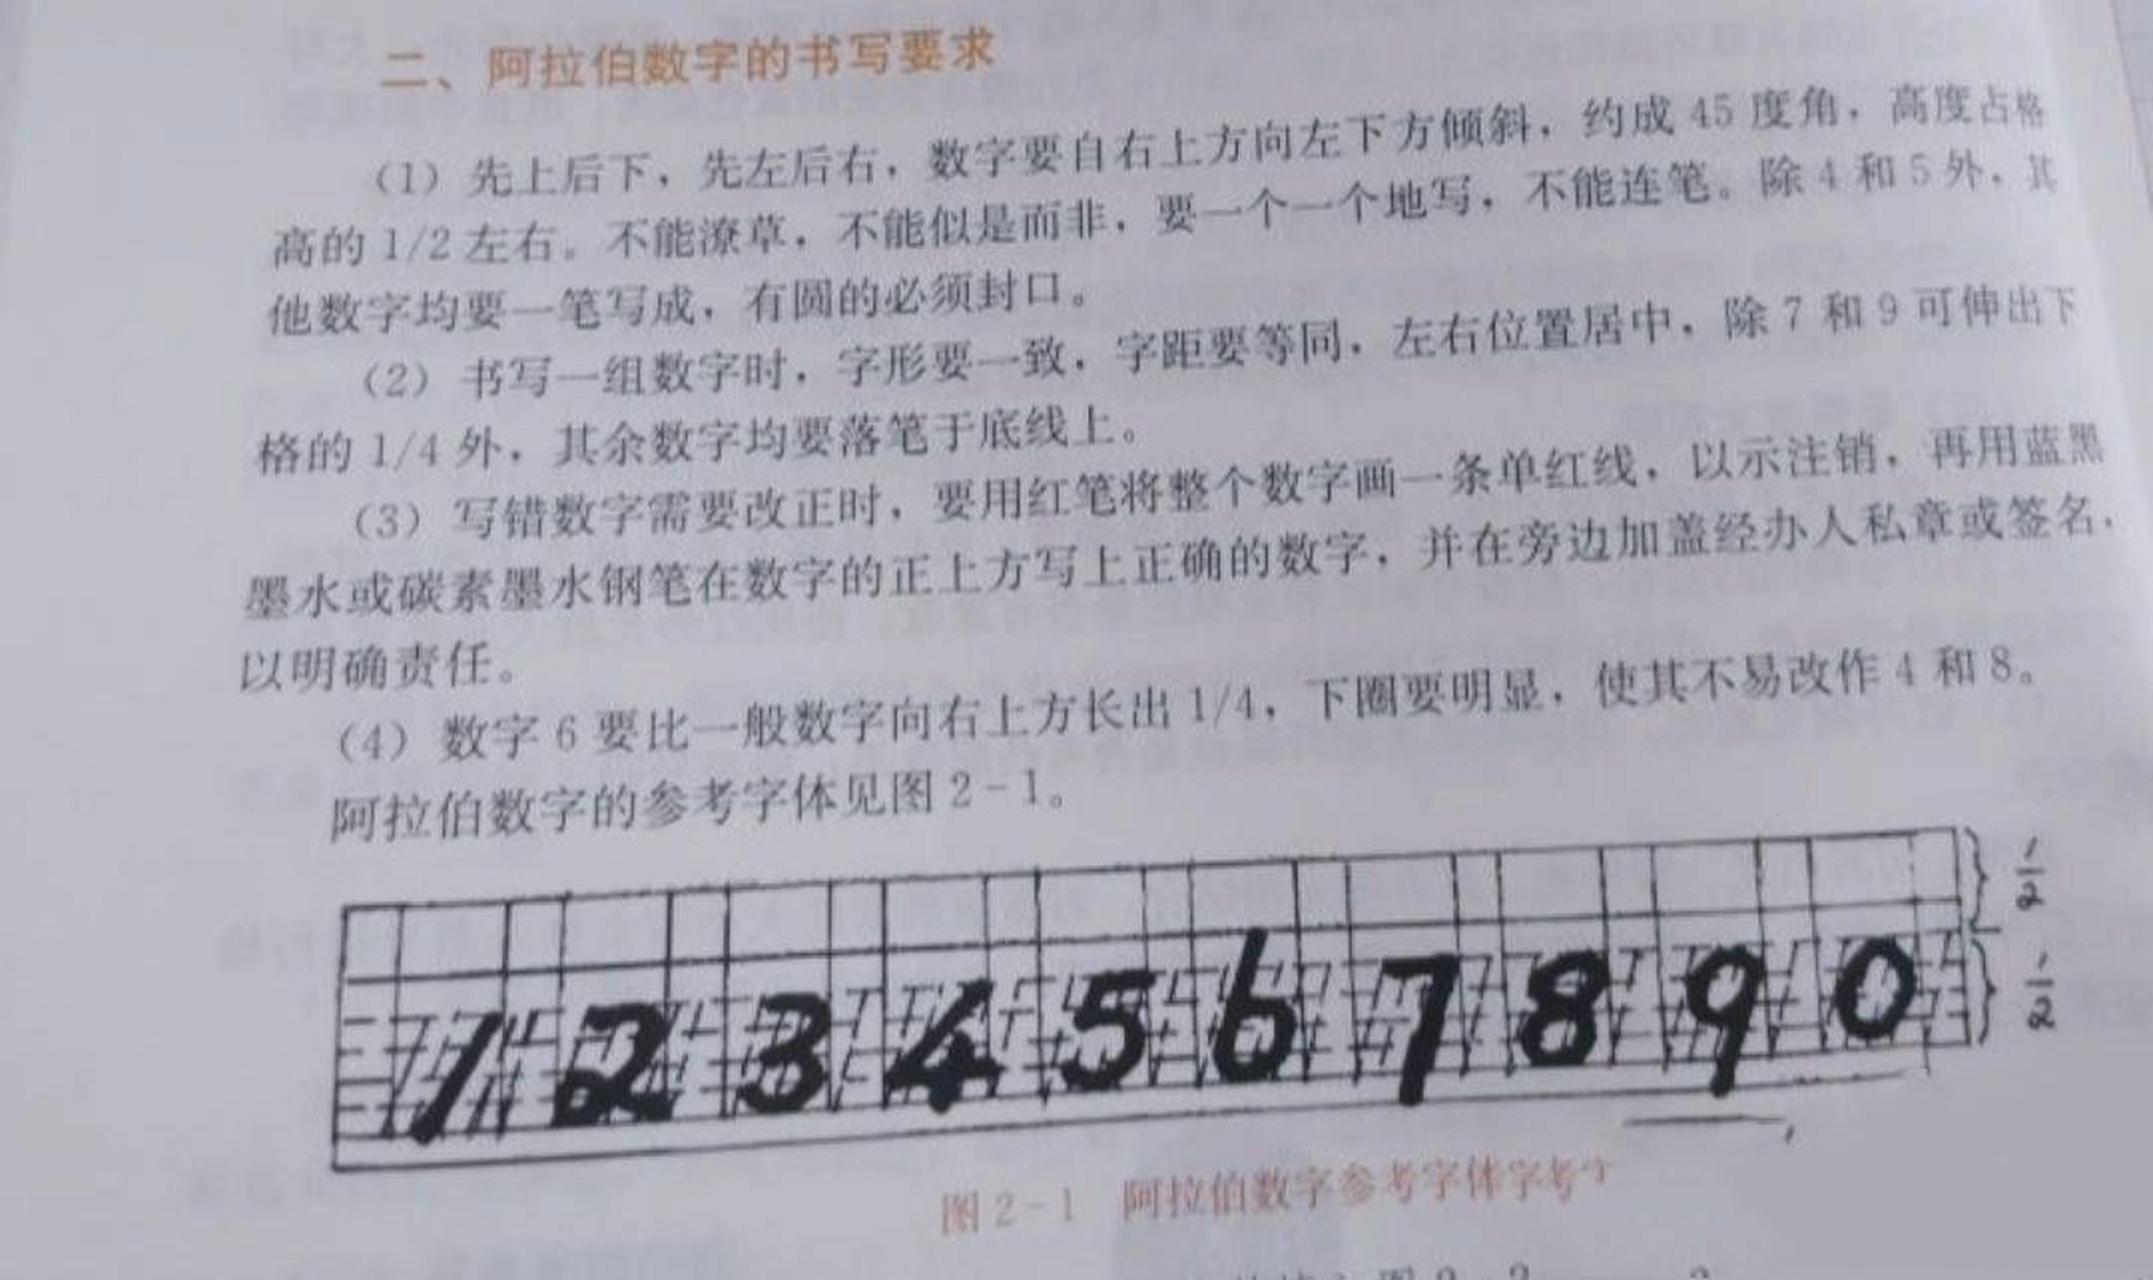 二、阿拉伯数字的书写要求
（1）先上后下，先左后右，数字要自右上方向左下方倾斜，约成 45 度角，高度占格
高的 1/2 左右。不能潦草，不能似是而非，要一个一个地写，不能连笔。除 4 和 5 外，其
他数字均要一笔写成，有圆的必须封口。
（2）书写一组数字时，字形要一致，字距要等同，左右位置居中，除 7 和 9 可伸出下
格的 1/4 外，其余数字均要落笔于底线上。
（3）写错数字需要改正时，要用红笔将整个数字画一条单红线，以示注销，再用蓝黑
墨水或碳素墨水钢笔在数字的正上方写上正确的数字，并在旁边加盖经办人私章或签名，
以明确责任。
（4）数字 6 要比一般数字向右上方长出 1/4，下圈要明显，使其不易改作 4 和 8。
阿拉伯数字的参考字体见图 2-1。
1/2
1 2 3 4 5 6 7 8 9 0
1/2
图 2-1 阿拉伯数字参考字体字考字